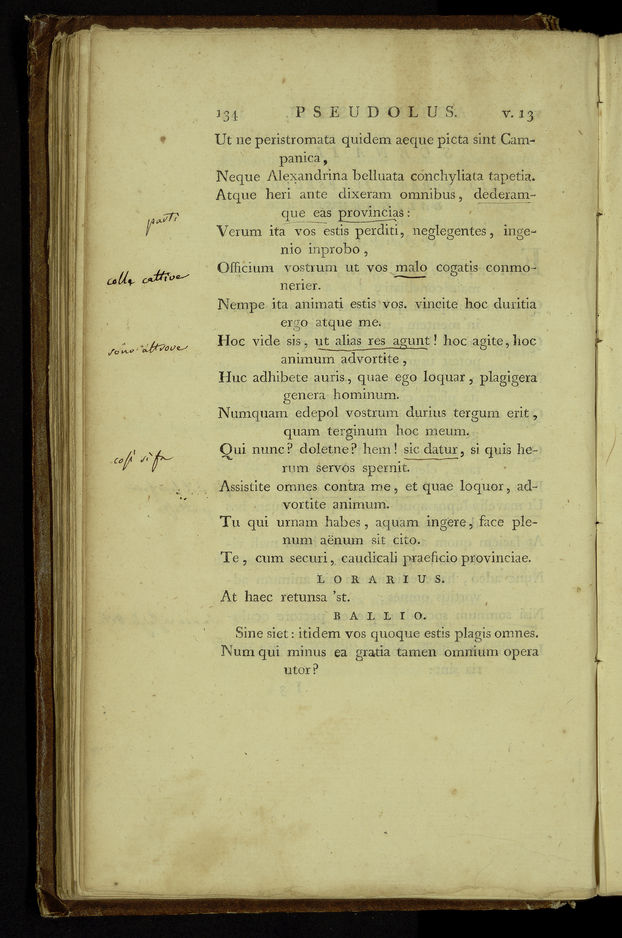 134 PSEUDOLUS. V. 13
Ut ne peristromata quidem aeque picta sint Cam-
panica,
Neque Alexandrina belluata conchyliata tapetia.
Atque heri ante dixeram omnibus, dederam-
que eas provincias:
parti
Verum ita vos estis perditi, neglegentes, inge-
nio inprobo,
Officium vostrum ut vos malo cogatis conmo-
colle cattive
nerier.
Nempe ita animati estis vos. vincite hoc duritia
ergo atque me.
Hoc vide sis, ut alias res agunt! hoc agite, hoc
sono altrove
animum advortite,
Huc adhibete auris, quae ego loquar, plagigera
genera hominum.
Numquam edepol vostrum durius tergum erit,
quam terginum hoc meum.
Qui nunc? doletne? hem! sic datur, si quis he-
così si fa
rum servos spernit.
Assistite omnes contra me, et quae loquor, ad-
vortite animum.
Tu qui urnam habes, aquam ingere, face ple-
num aënum sit cito.
Te, cum securi, caudicali praeficio provinciae.
LORARIUS.
At haec retunsa 'st.
BALLIO.
Sine siet: itidem vos quoque estis plagis omnes.
Num qui minus ea gratia tamen omnium opera
utor?